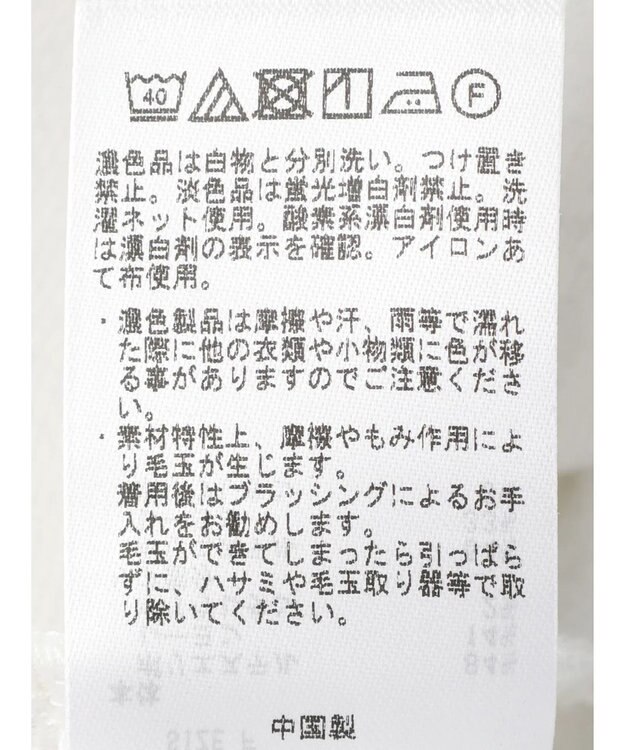 40
F
濃色品は白物と分別洗い。つけ置き
禁止。淡色品は蛍光増白剤禁止。洗
濯ネット使用。酸素系漂白剤使用時
は漂白剤の表示を確認。アイロンあ
て布使用。
・濃色製品は摩擦や汗、雨等で濡れ
た際に他の衣類や小物類に色が移
る事がありますのでご注意くださ
い。
・素材特性上、摩擦やもみ作用によ
り毛玉が生じます。
着用後はブラッシングによるお手
入れをお勧めします。
毛玉ができてしまったら引っぱら
ずに、ハサミや毛玉取り器等で取
り除いてください。
ポリエステル 84%
本体
中国製
SIZE F